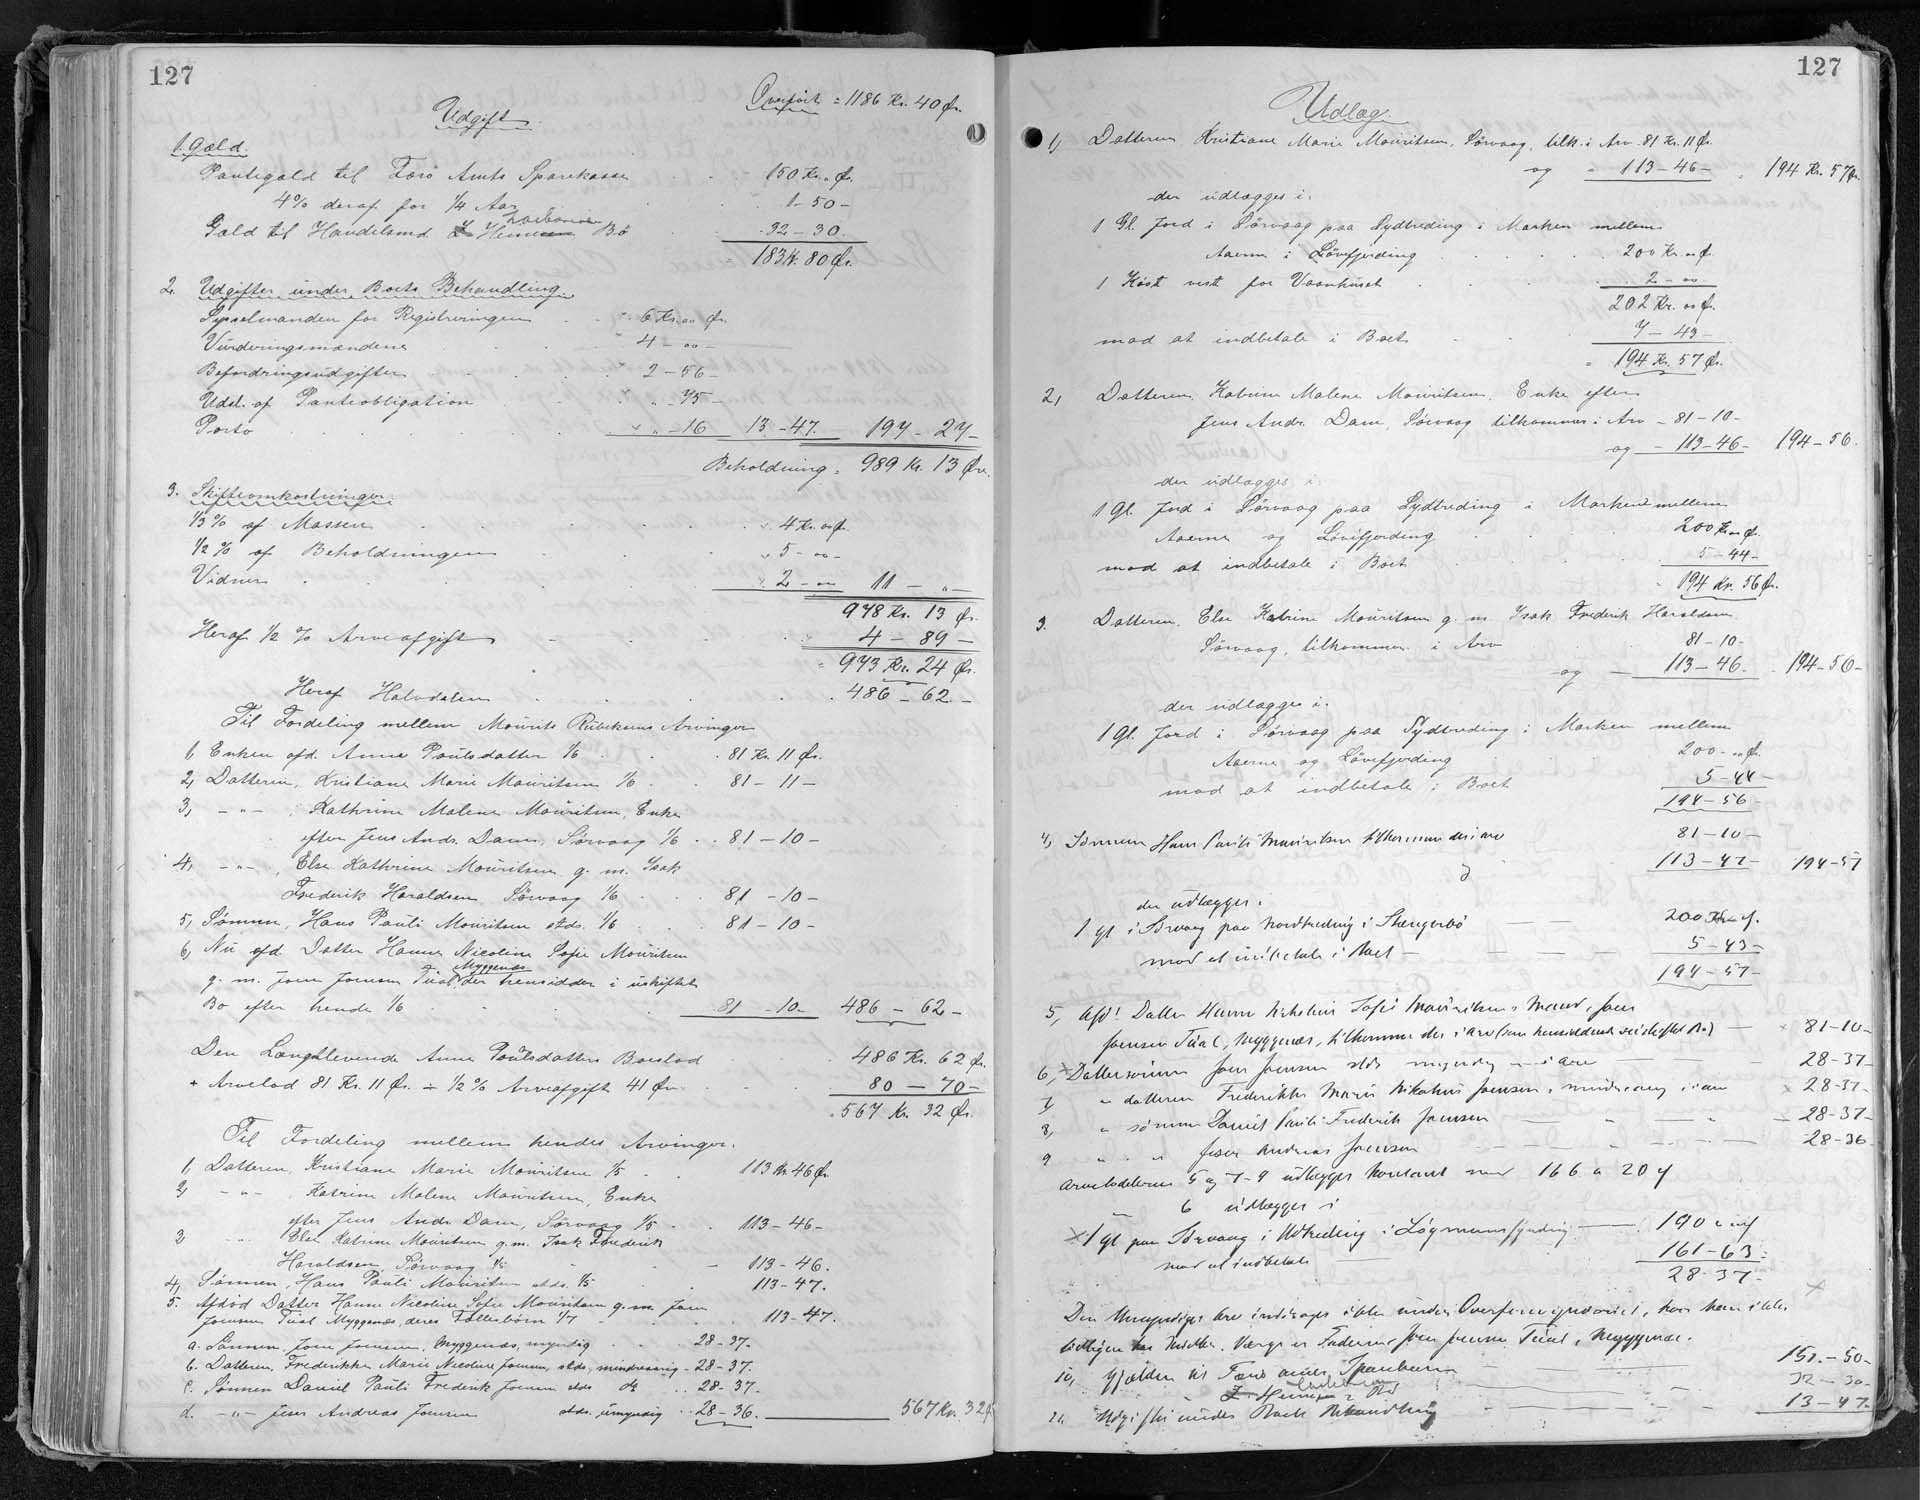 127
Overført = 1186 Kr. 40 Ør.
Udgift.
1. Gæld.
Pantegæld til Færø Amts Sparekasse 150 Kr. " Ør.
4% deraf for 1/4 Aar 1 - 50 -
Gæld til Handelsmd. Zacharias Heinesen Bø 32 - 30.
183 K. 80 Ør.
2. Udgifter under Boets Behandling.
Sysselmanden for Registreringen 6 Kr. 00 Ør.
Vurderingsmændene 4 - 00 -
Befordringsudgifter 2 - 56 -
Udsl. af Panteobligation " - 75 -
Porto " - 16 13 - 47. 197 - 27 -
Beholdning = 989 Kr. 13 Øre.
3. Skifteomkostninger.
1/3 % af Massen 4 Kr. 00 Ør.
1/2 % af Beholdningen 5 - 00 -
Vidner 2 - 00 11 - " -
978 Kr. 13 Ør.
Heraf 1/2 % Arveafgift 4 - 89 -
= 973 Kr. 24 Ør.
Heraf Halvdelen 486 - 62 -
Til Fordeling mellem Mourits Rubeksens Arvinger
1, Enken afd. Anna Poulsdatter 1/6 81 Kr. 11 Ør.
2, Datteren, Kristiane Marie Mouritsen 1/6 81 - 11 -
3, - " - , Kathrine Malene Mouritsen, Enke
efter Jens Andr. Dam, Sørvaag 1/6 81 - 10 -
4, - " - , Else Kathrine Mouritsen g. m. Isak
Frederik Haraldsen Sørvaag 1/6 81 - 10 -
5, Sønnen, Hans Pauli Mouritsen stds. 1/6 81 - 10 -
6, Nu afd. Datter Hanne Nicoline Sofie Mouritsen
g. m. Joen Joensen Tual, Myggenæs der hensidder i uskiftet
Bo efter hende 1/6 81 - 10 - 486 - 62 -
Den Længstlevende Anna Poulsdatters Boeslod 486 Kr. 62 Ør.
+ Arvelod 81 Kr. 11 Ør. ÷ 1/2 % Arveafgift 41 Ør. 80 - 70 -
= 567 Kr. 32 Ør.
Til Fordeling mellem hendes Arvinger.
1, Datteren, Kristiane Marie Mouritsen 1/5 113 Kr. 46 Ør.
2, - " - , Katrine Malene Mouritsen, Enke
efter Jens Andr. Dam, Sørvaag 1/5 113 - 46 -
3 - " - Else Katrine Mouritsen g. m. Isak Frederik
Haraldsen, Sørvaag 1/5 113 - 46.
4, Sønnen, Hans Pauli Mouritsen stds. 1/5 113 - 47.
5. Afdød Datter Hanne Nicoline Sofie Mouritsen g. m. Joen
Joensen Tual Myggenæs, deres Fællesbørn 113 - 47.
a. Sønnen Joen Joensen, Myggenæs, myndig 28 - 37.
b. Datteren, Frederikke Marie Nicoline Joensen, stds, mindreaarig - 28 - 37.
c. Sønnen Daniel Pauli Frederik Joensen stds do 28 - 37.
d. - " - Jens Andreas Joensen stds. umyndig 28 - 36. 567 Kr. 32 Ør.
127
Udlæg.
1, Datteren, Kristiane Marie Mouritsen, Sørvaag, tilk. i Arv 81 Kr. 11 Ør.
og 113 - 46 - 194 Kr. 57 Ør.
der udlægges i:
1 Gl. Jord i Sørvaag paa Sydtreding i Marken mellem
Aaerne i Løvefjording 200 Kr. 00 Ør.
1 Kost vest for Vaanhuset 2 - 00
202 Kr. 00 Ør.
mod at indbetale i Boet 7 - 43 -
194 Kr. 57 Ør.
2, Datteren, Katrine Malene Mouritsen, Enke efter
Jens Andr. Dam, Sørvaag tilkommer i Arv - 81 - 10 -
og - 113 - 46 - 194 - 56.
der udlægges i:
1 Gl. Jord i Sørvaag paa Sydtreding i Marken mellem
Aaerne og Løvefjording 200 Kr. 00 Ør.
mod at indbetale i Boet 5 - 44 -
194 Kr. 56 Ør.
3. Datteren, Else Katrine Mouritsen g. m. Isak Frederik Haraldsen
Sørvaag, tilkommer i Arv 81 - 10 -
og 113 - 46 - 194 - 56 -
der udlægges i:
1 Gl. Jord i Sørvaag paa Sydtreding i Marken mellem
Aaerne og Løvefjording 200 - 00 Ør.
mod at indbetale i Boet 5 - 44 -
194 - 56 -
4, Sønnen Hans Pauli Mouritsen tilkommer der i arv 81 - 10 -
og 113 - 47 - 194 - 57
der udlægges i
1 gl i Sørvaag paa Nordtreding i Stengerbø 200 Kr
mod at indbetale i Boet 5 - 43 -
194 - 57 -
5, Afd. Datter Hanne Nikoline Sofie Mouritsens Mand, Joen
Joensen Tual, Myggenæs, tilkommer der i arv (som hensiddende i uskiftet Bo) 81 - 10 -
6, Dattersønnen Joen Joensen stds myndig i arv 28 - 37
7, " datteren Frederikke Marie Nikoline Joensen, mindreaarig i arv 28 - 37 -
8, " sønnen Daniel Pauli Frederik Joensen 28 - 37 -
9 " " Jens Andreas Joensen 28 - 36
Arvelodderne 5 og 7 - 9 udlægges kontant med 166 20
6 udlægges i
1 gl paa Sørvaag i Nordtreding i Løgmansfjording 190
mod at indbetale 161 - 63 -
28 - 37 -
Den Umyndiges Arv inddrages ikke under Overformynderiet, han
Værge er Faderen Joen Joensen Tual, Myggenæs.
10, Gjælden til Færø amts Sparekasse 151. - 50 -
Zacharias Heinesen Bø 32 - 30 -
Udgifter under Boets Behandling 13 - 47.